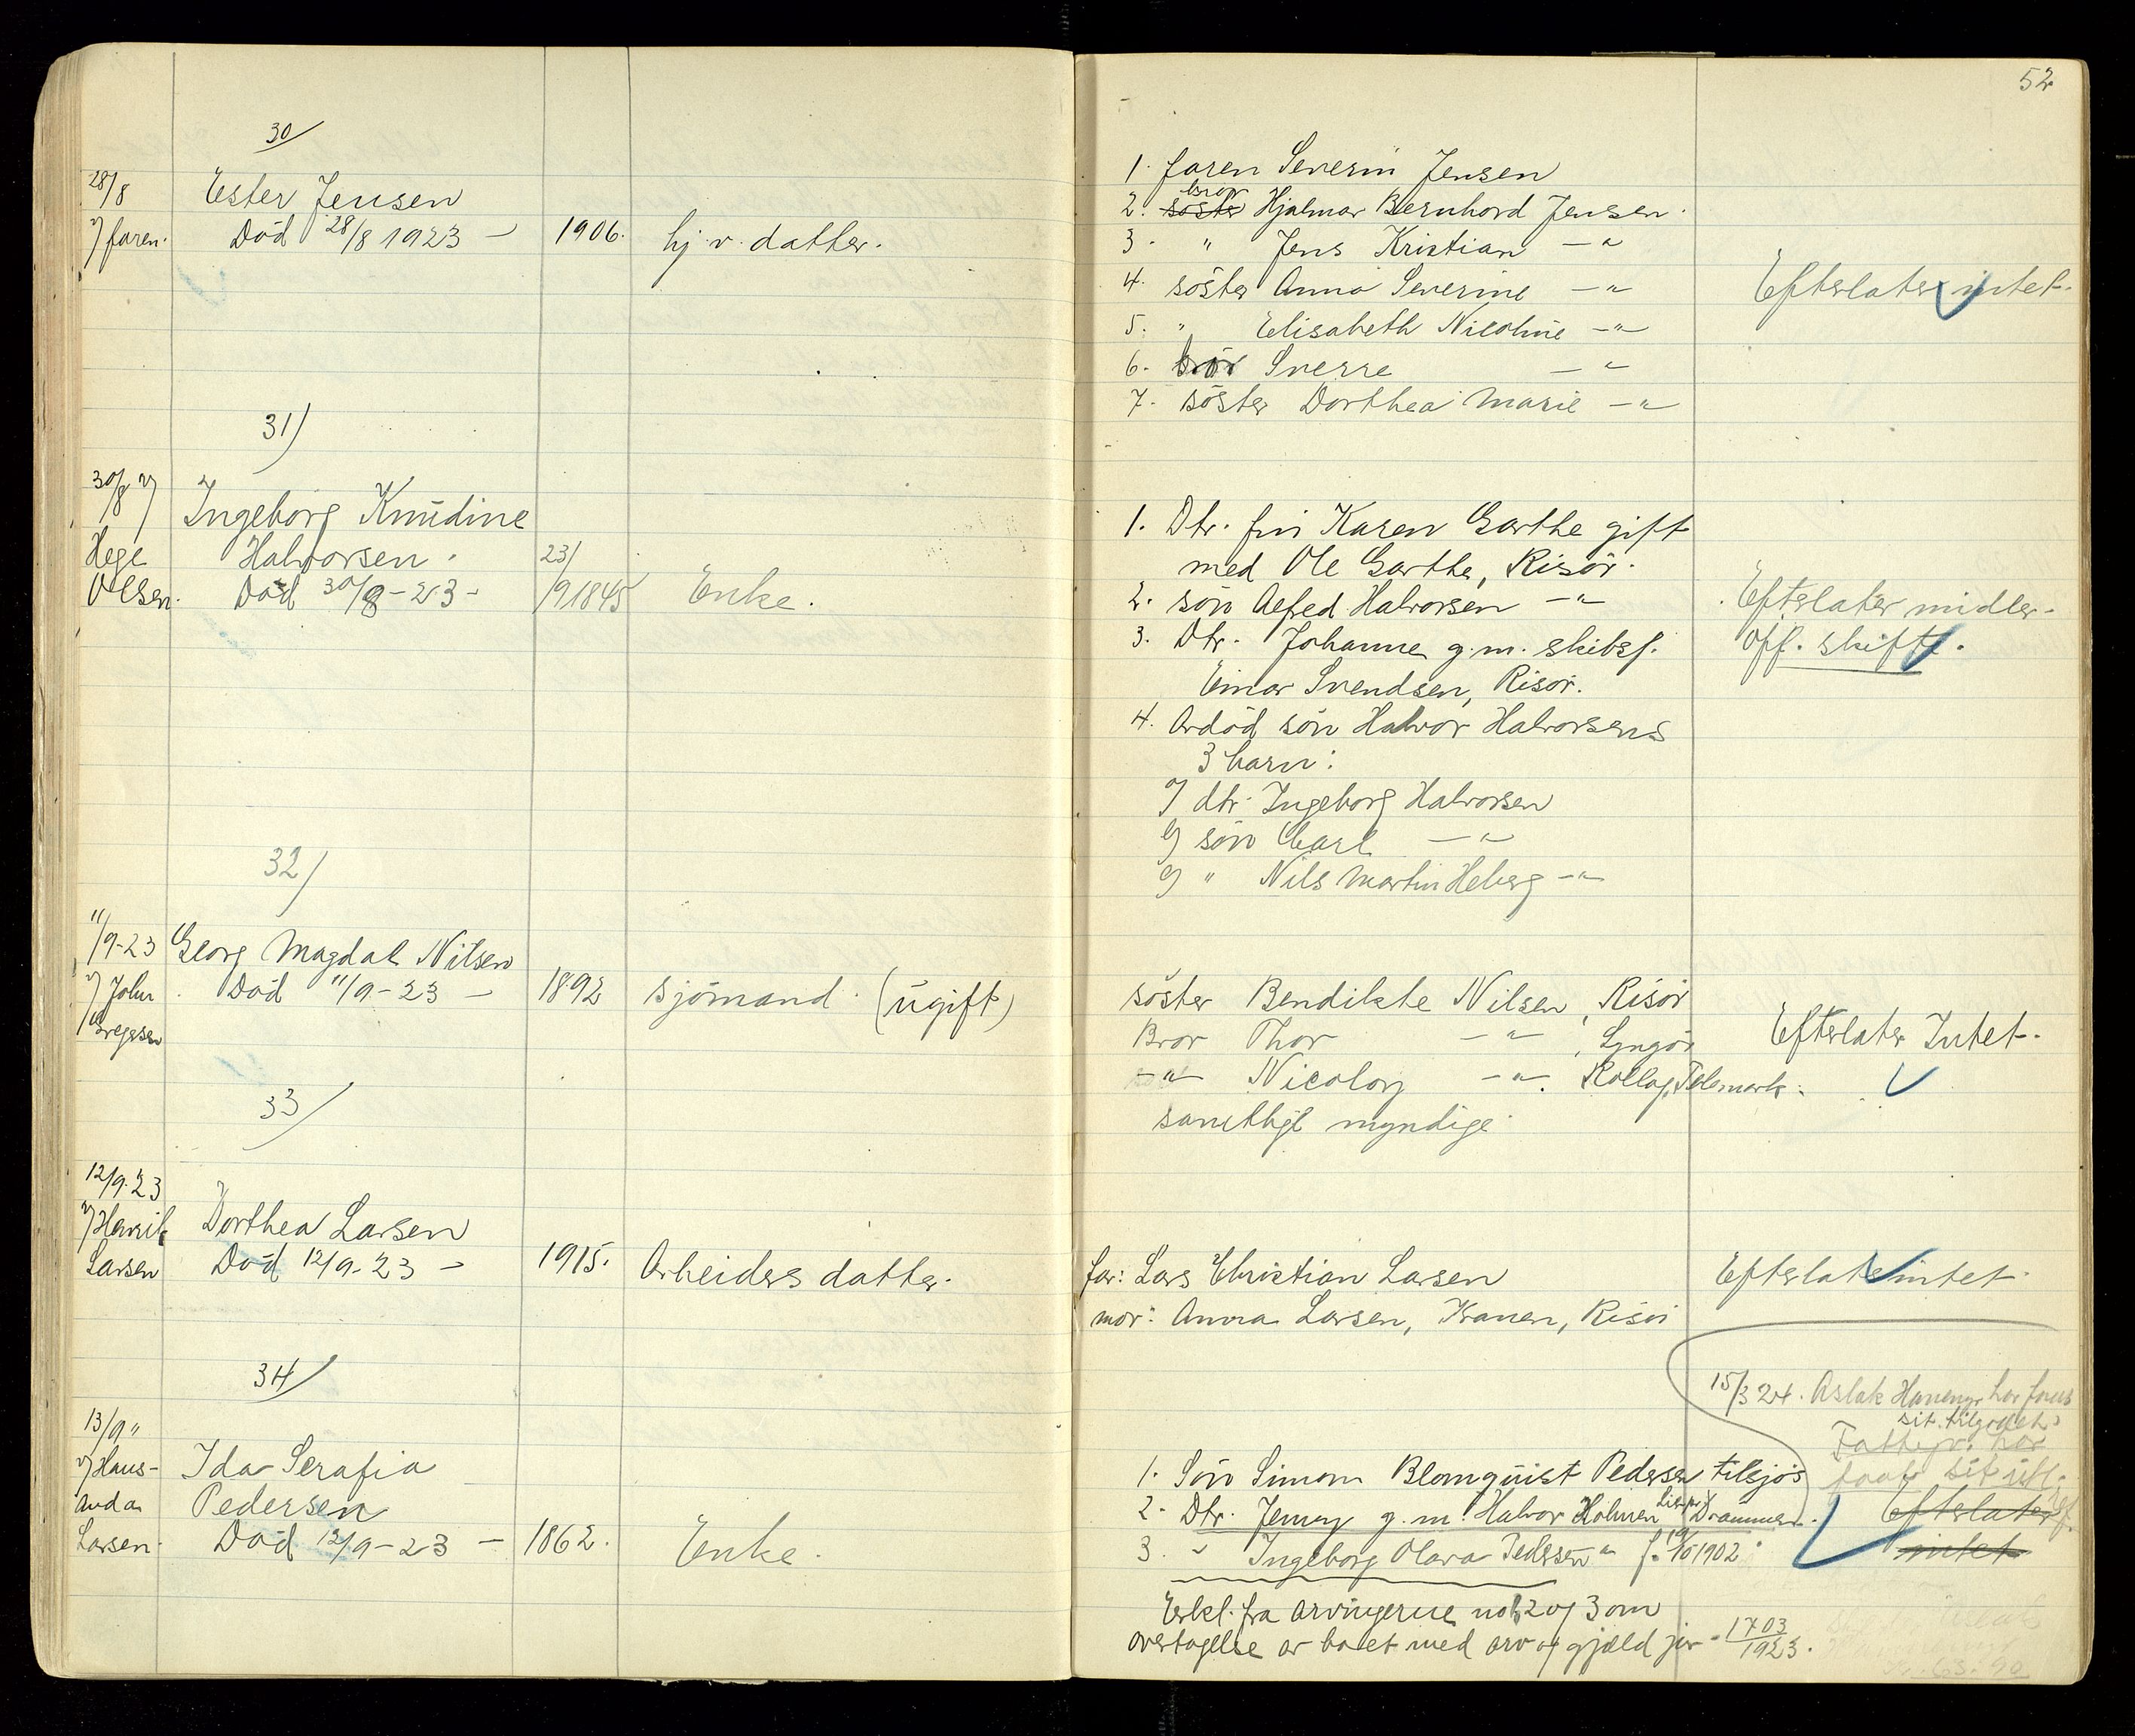 52
30/
28/8
v/ faren.
Ester Jensen
Död 28/8 1923 –
1906.
hj. v. datter.
1. faren Severin Jensen
2. söster bror Hjalmar Bernhard Jensen.
3. " Jens Kristian –"–
4. söster Anna Severine –"–
5. " Elisabeth Nicoline –"–
6. bror Sverre –"–
7. söster Dorthea Marie –"–
Efterlater intet.
31)
30/8 v/
Hege
Olsen.
Ingeborg Knudine
Halvorsen.
Död 30/8 - 23 -
23/
/9 1845
Enke.
1. Dtr. fru Karen Garthe gift
med Ole Garthe, Risör.
2. sön Alfred Halvorsen –"–
3. Dtr. Johanne g. m. skibsf.
Einar Svendsen, Risör.
4. Avdöd sön Halvor Halvorsens
3 barn:
a) dtr. Ingeborg Halvorsen
b) sön Carl –"–
c) " Nils Martin Heberg –"–
Efterlater midler.
Off. skifte.
32/
11/9-23
v/ John
Gregersen
Georg Magdal Nilsen
Död 11/9 - 23 –
1892
sjömand. (ugift)
söster Bendikte Nilsen, Risör
Bror Thor –"–, Lyngör
–"– Nicolay –"–. Rollag, Telemark.
samtlige myndige
Efterlater Intet.
33/
12/9.23
v/ Henrik
Larsen
Dorthea Larsen
Död 12/9 - 23 –
1915.
Arbeiders datter.
far: Lars Christian Larsen
mor: Anna Larsen, Kranen, Risör
Efterlater intet.
34/
13/9 "
v/ Hans-
Anda
Larsen.
Ida Serafia
Pedersen
Död 12/9 - 23 –
1862.
Enke.
1. Sön Simon Blomquist Pedersen tilsjös
2. Dtr. Jenny g. m. Halvor Holmen Lier pr. Drammen.
3. " Ingeborg Olava Pedersen " f. 19/10 1902.
Erkl. fra arvingerne no 1, 2 og 3 om
overtagelse av boet med arv og gjæld jnr. 1703/1923.
15/3 24. Aslak
sit tilgodeh.
Fattigv. har
sit utl.
Efterlater
intet